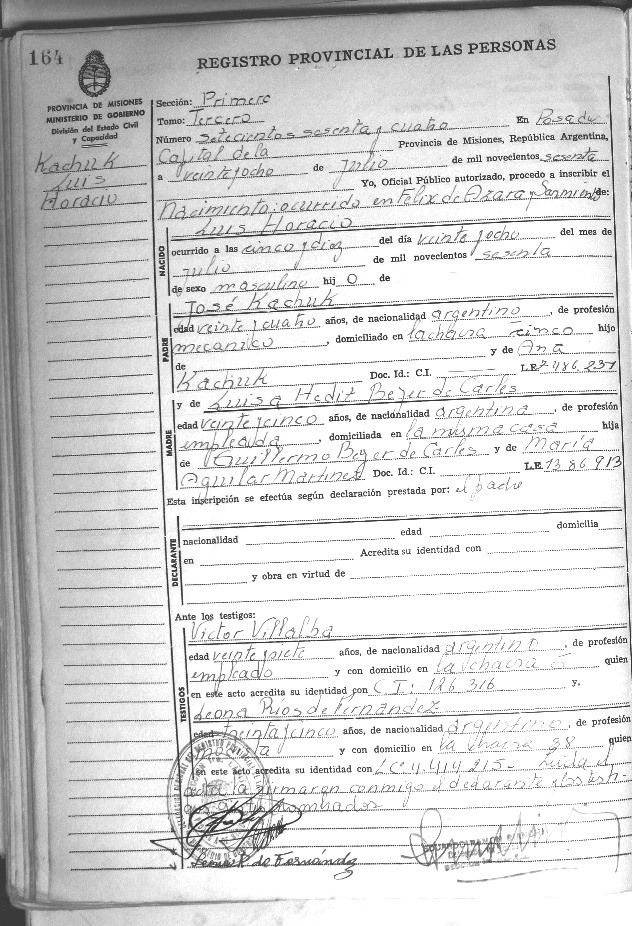 164
REGISTRO PROVINCIAL DE LAS PERSONAS
PROVINCIA DE MISIONES
MINISTERIO DE GOBIERNO
División del Estado Civil
y Capacidad
Kachuk
Luis
Horacio
Sección: Primera
Tomo: Tercero
Número setecientos sesenta y cuatro En Posadas
Capital de la Provincia de Misiones, República Argentina,
a veintejocho de Julio de mil novecientos sesenta
Yo, Oficial Público autorizado, procedo a inscribir el
Nacimiento: ocurrido en Felix de Azara y Sanmiento de:
Luis Horacio
NACIDO
ocurrido a las cinco y diez del día veintejocho del mes de
Julio de mil novecientos sesenta
de sexo masculino hijo de
José Kachuk
PADRE
edad veintejcuatro años, de nacionalidad argentino, de profesión
mecanico, domiciliado en la chacra cinco hijo
de y de Ana
Kachuk Doc. Id.: C.I. L.E. 7.486.237
y de Luisa Hedit Beyer de Carles
MADRE
edad veintejcinco años, de nacionalidad argentina, de profesión
empleada, domiciliada en la misma casa hija
de Guillermo Beyer de Carles y de María
Aguilar Martinez Doc. Id.: C.I. L.E. 1386913
Esta inscripción se efectúa según declaración prestada por: el padre
DECLARANTE
nacionalidad edad domicilia
en Acredita su identidad con
y obra en virtud de
Ante los testigos:
TESTIGOS
Victor Villalba
edad veintesiete años, de nacionalidad argentino, de profesión
empleado y con domicilio en la chacra 5 quien
en este acto acredita su identidad con C.I. 126.316 y.
Leona Rios de Fernandez
edad treintajcinco años, de nacionalidad argentina, de profesión
y con domicilio en la chacra 38 quien
en este acto acredita su identidad con L.C. 4.414.215- Leida el
acta la firmaran conmigo el declarante y los testi-
gos nombrados
de Fernández